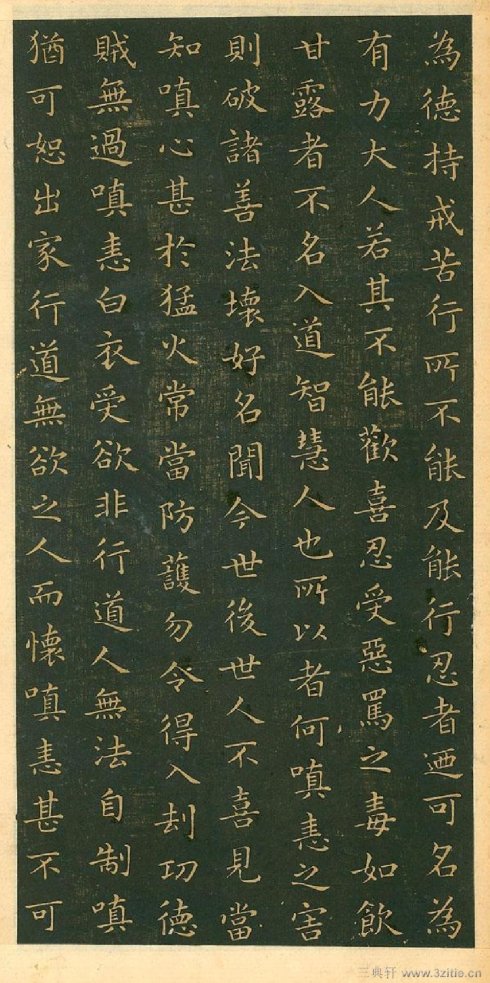 為德持戒苦行所不能及能行忍者迺可名為
有力大人若其不能歡喜忍受惡罵之毒如飲
甘露者不名入道智慧人也所以者何嗔恚之害
則破諸善法壞好名聞今世後世人不喜見當
知嗔心甚於猛火常當防護勿令得入刦功德
賊無過嗔恚白衣受欲非行道人無法自制嗔
猶可恕出家行道無欲之人而懷嗔恚甚不可
三典轩 www.3zitie.cn